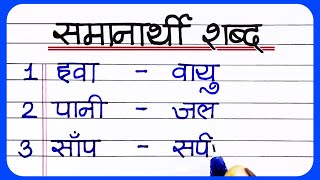 समानार्थी शब्द
1 हवा - वायु
2 पानी - जल
3 साँप - सर्प